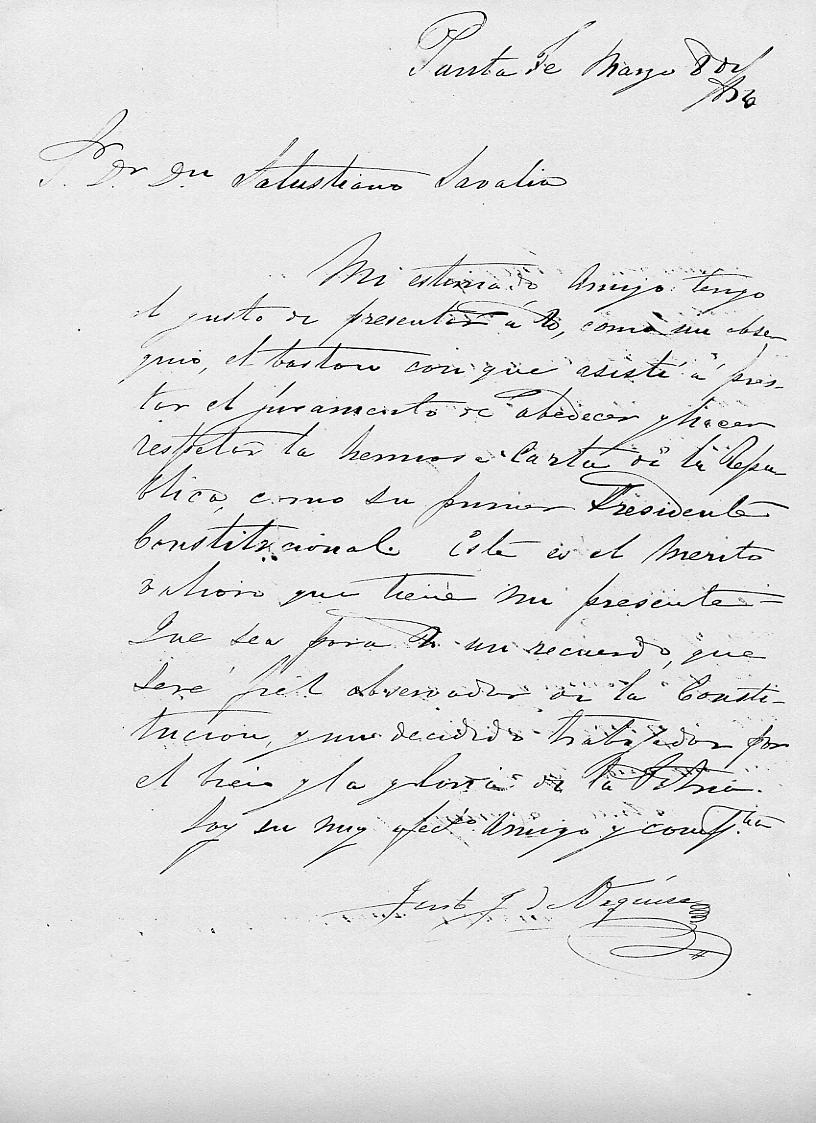 Santa Fe Marzo 8 de
/856
Sr. Dr. Dn Salustiano Savalia
Mi estimado Amigo tengo
el gusto de presentar á V., como un obse
quio, el baston con que asistí á pres-
tar el juramento de obedecer y hacer
respetar la hermosa Carta de la Repu
blica, como su primer Presidente
Constitucional. Este es el merito
que tiene mi presente =
Que sea para V. un recuerdo, que
seré fiel observador de la Consti-
tucion, y un decidido trabajador por
el bien y la gloria de la Patria.
Soy su muy afecto. Amigo y
Justo J de Urquiza